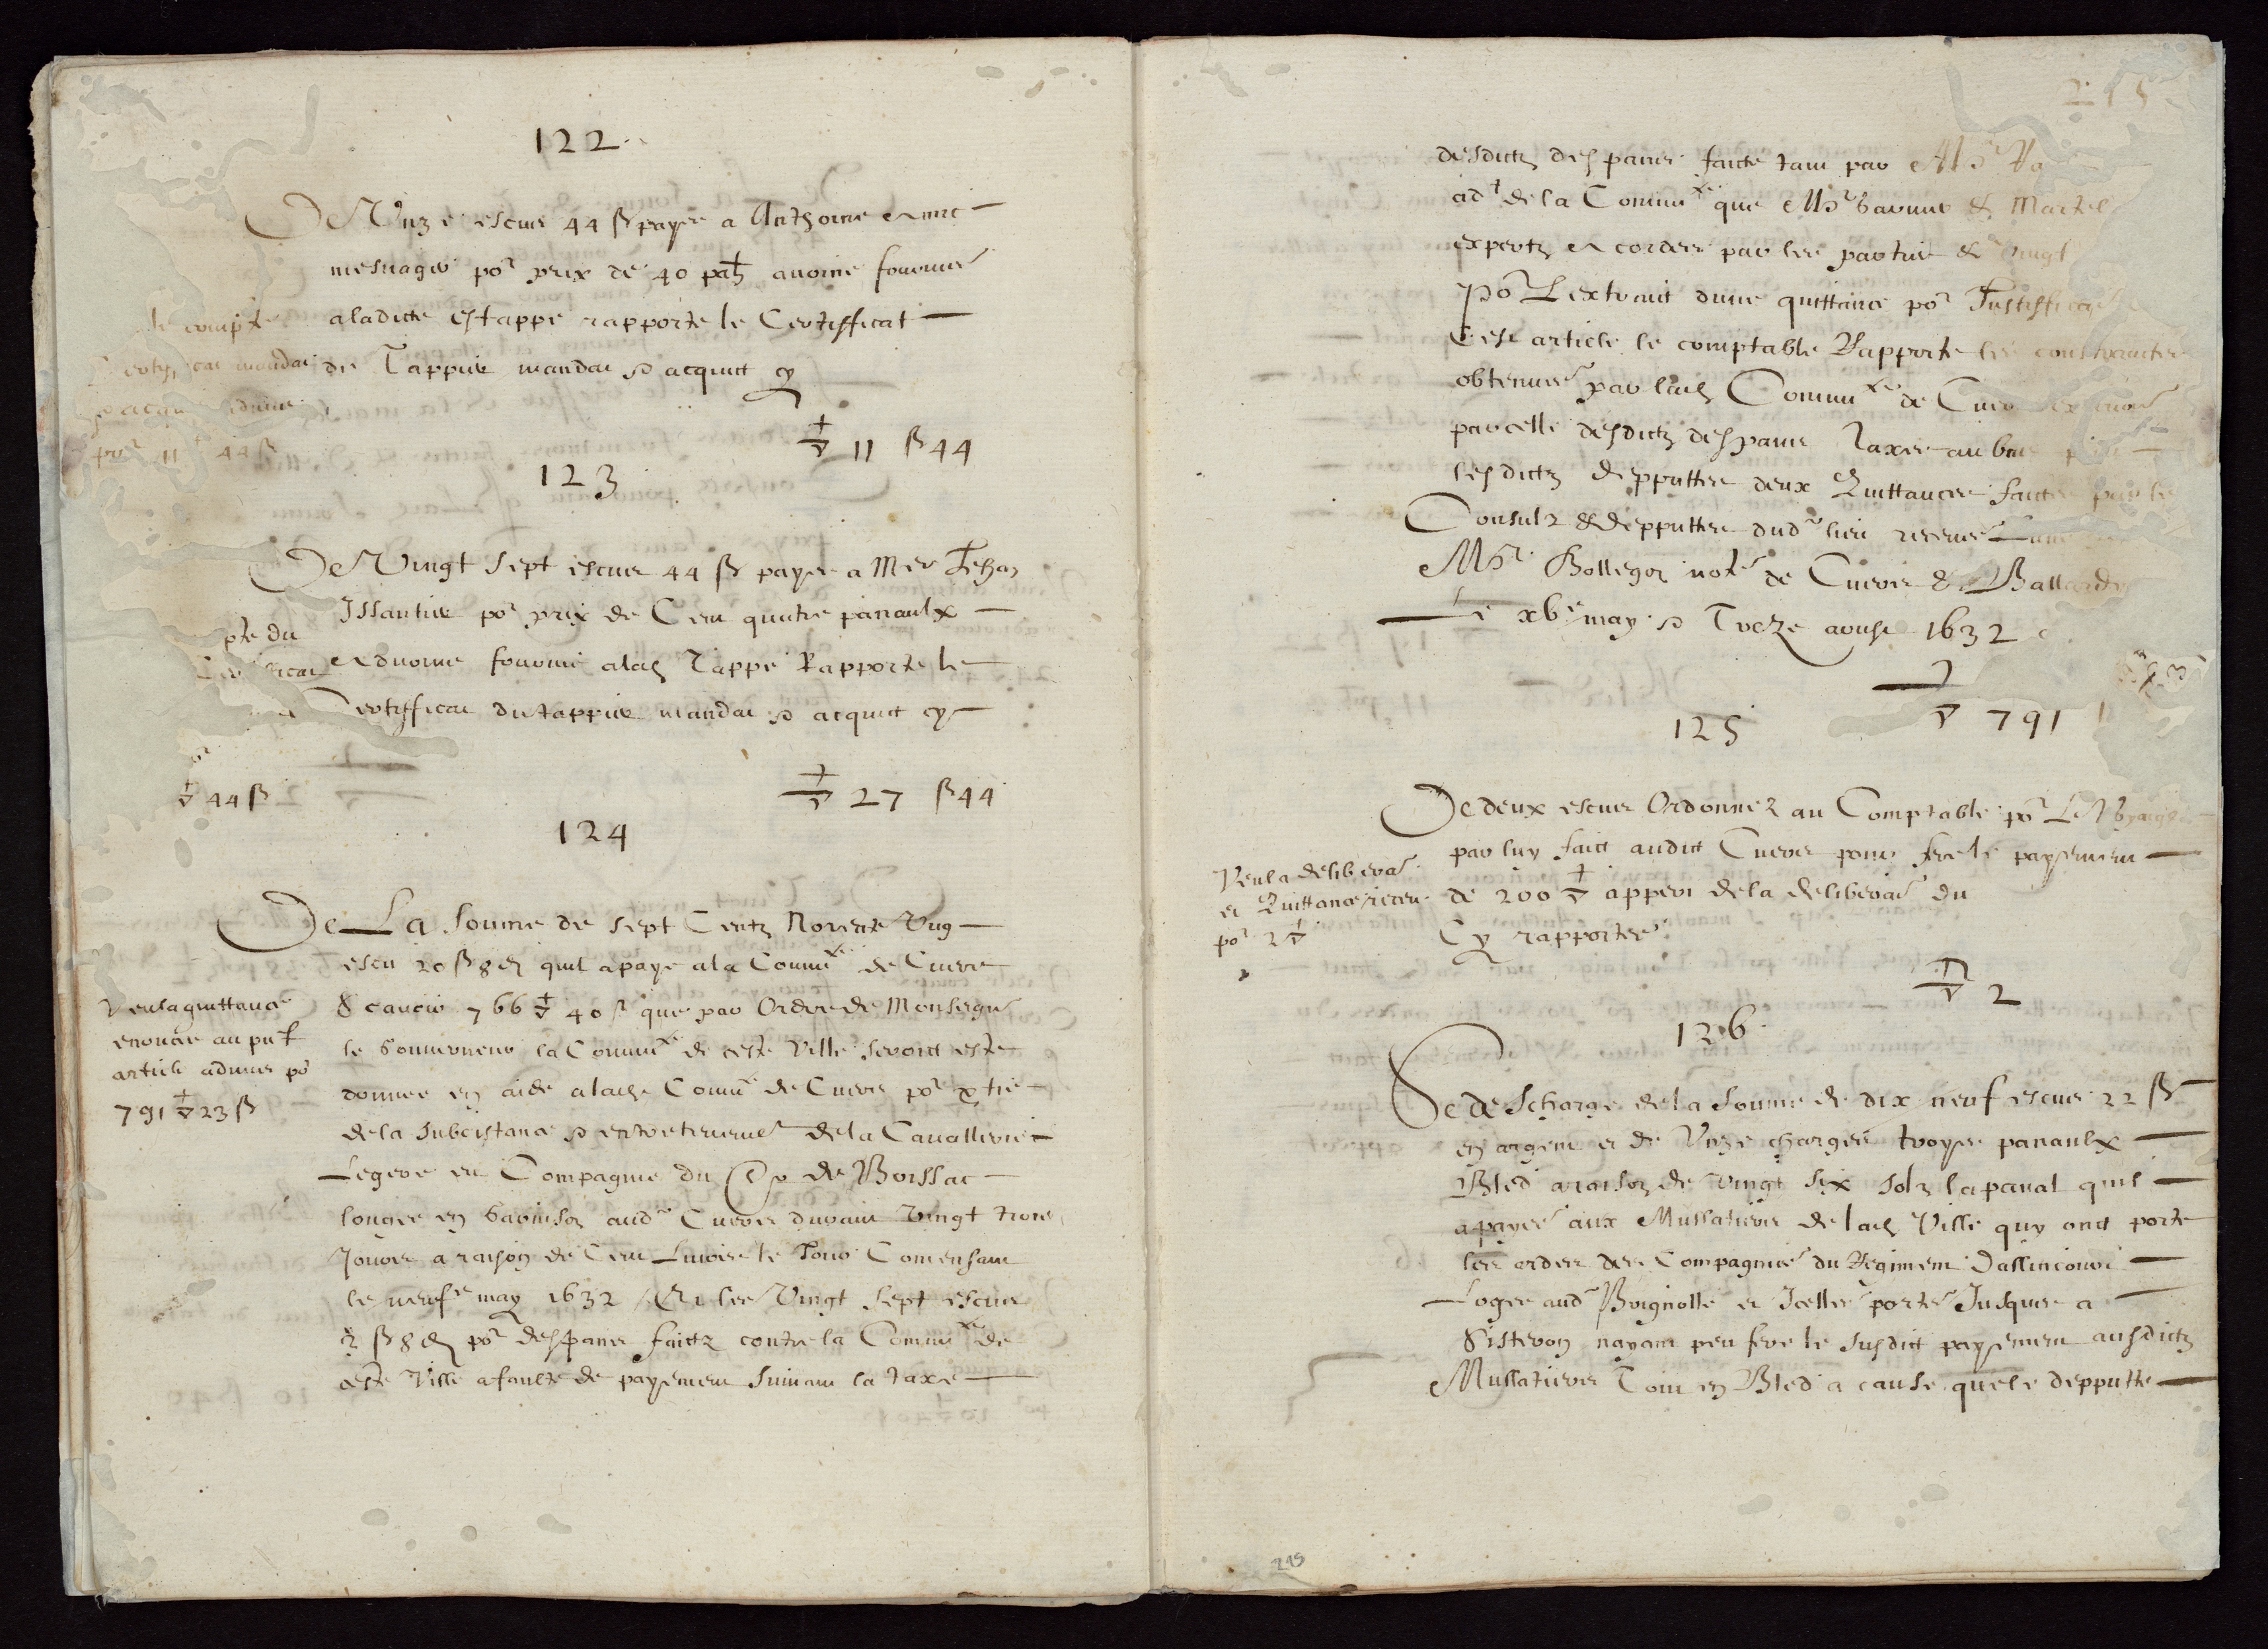 122
De Unze escus 44 ß payes a Anthoine
mesnagier por prix de 40 pah avoine fournie
aladicte estappe rapporte le Certifficat
de Tappier mandat & acquit cy
11 ß 44
compte
mandat
44 ß
123
De Vingt sept escus 44 ß payes a Mer Jehan
Issautier por prix de Cent quatre panaulx
advoine fournie alad Tappe Rapporte le
Certifficat du tappier mandat & acquit cy
27 ß 44
pte du
44 ß
124
De La somme de sept Centz Nonente Ung
escu 20 ß 8 d quil a paye ala Commte de Cuers
Scavoir 766 40 s que par Ordre de Monseigr
le Gouverneur la Commte de ceste Ville seroict este
donnee en aide alad Commte de Cuers por ptie
dela subcistance & entretenement dela Cavallerie
Legere en Compagnie du Sr de Boissac
lougee en Garnison aud Cuers durant Vingt trois
Jours a raison de Cent Livres le Jour Comensant
le neufe may 1632 Et les Vingt sept escus
2 ß 8 d por despans faictz contre la Commte de
ceste Ville a faulte de payement suivant la taxe
Veu la quittance
enoncee au pnt
article admis por
791 23 ß
215
desdictz despans faicte tant par Me
adt de la Commte que Mes Garnier & Martel
expertz acordes par les parties & vingt
Por Lextraict dune quittance por Justiffica
Cest article le comptable Rapporte les contrainctes
obtenues par lad Commte de Cuers
parcelle desdictz despans Taxes au bas
lesdictz depputtes deux Quittances faictes par les
Consulz & depputtes dud lieu receues
Me Bollegon note de Cuers & Ballard
Le xve may & Treze aoust 1632
791
125
De deux escus Ordonnez au Comptable por Le Voyaige
par luy faict audict Cuers pour fere le payement
de 200 appert dela deliberaon du
Cy rapportee
2
Veu la deliberaon
et Quittance
por 2
126
De descharge dela somme de dix neuf escus 22 ß
en argent et de Unze charges troys panaulx
Bled a raison de vingt six solz la panal quil
a payes aux Mullatiers de lad Ville quy ont porte
les ardes des Compagnies du Regiment Dallincourt
Loges aud Brignolle et Icelles portes Jusques a
Sisteron nayant peu fere le susdict payement ausdictz
Mullatiers Tout en Bled a cause que le depputte
215